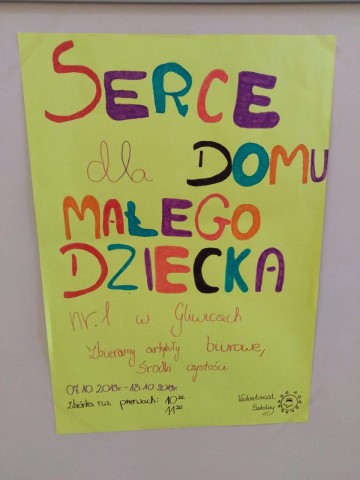 SERCE
dla DOMU
MAŁEGO
DZIECKA
nr. 1 w Gliwicach
Zbieramy artykuły biurowe,
środki czystości.
Zbiórka na przerwach: 10
11
Wolontariat
Szkolny